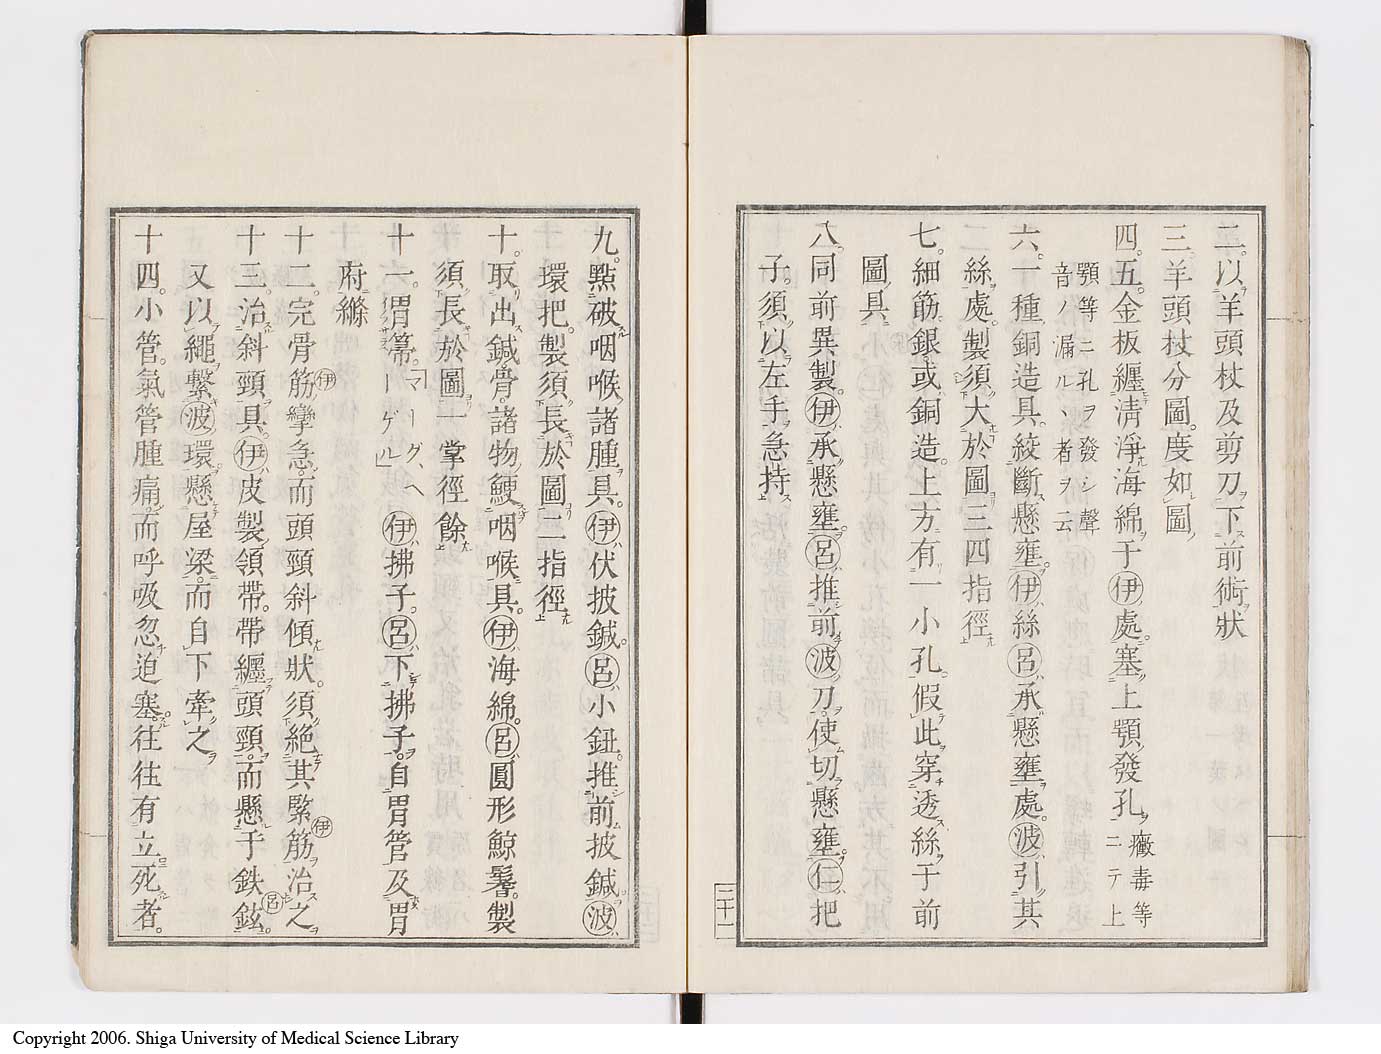 二。以羊頭杖及剪刀下前術状
三。羊頭杖分圖。度如圖
四。五。金板纒淸淨海綿于伊處。塞上顎發孔 癥毒等ニテ上
顎等ニ孔ヲ發シ聲
音ノ漏ルヽ者ヲ云
六。一種銅造具。絞斷懸壅。伊絲呂承懸壅處。波引其
絲處。製須大於圖三四指徑
七。細筋。銀或銅造。上方有一小孔。假此穿透絲于前
圖具
八。同前異製。伊承懸壅。呂推前波刀。使切懸壅。仁把
子。須以左手急持
二十一
九。點破咽喉諸腫具。伊伏披鍼。呂小鈕。推前披鍼波
環把。製須長於圖二指徑
十。取出鍼骨。諸物鯁咽喉具。伊海綿。呂圓形鯨鬚。製
須長於圖一掌徑餘
十一。胃箒。「マーグ、ヘーゲル」伊拂子。呂下拂子。自胃管及胃
府縧
十二。完骨筋伊攣急。而頭頸斜傾狀。須絶其緊筋伊治之
十三。治斜頸具。伊皮製領帶。帶纒頭頸。而懸于鉄鉉呂。
又以繩繫波環懸屋梁。而自下牽之
十四。小管。氣管腫痛。而呼吸忽迫塞。往往有立死者。
Copyright 2006. Shiga University of Medical Science Library